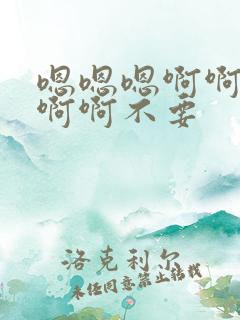 嗯嗯嗯啊啊
啊啊不要
洛克利尔
未经同意禁止转载